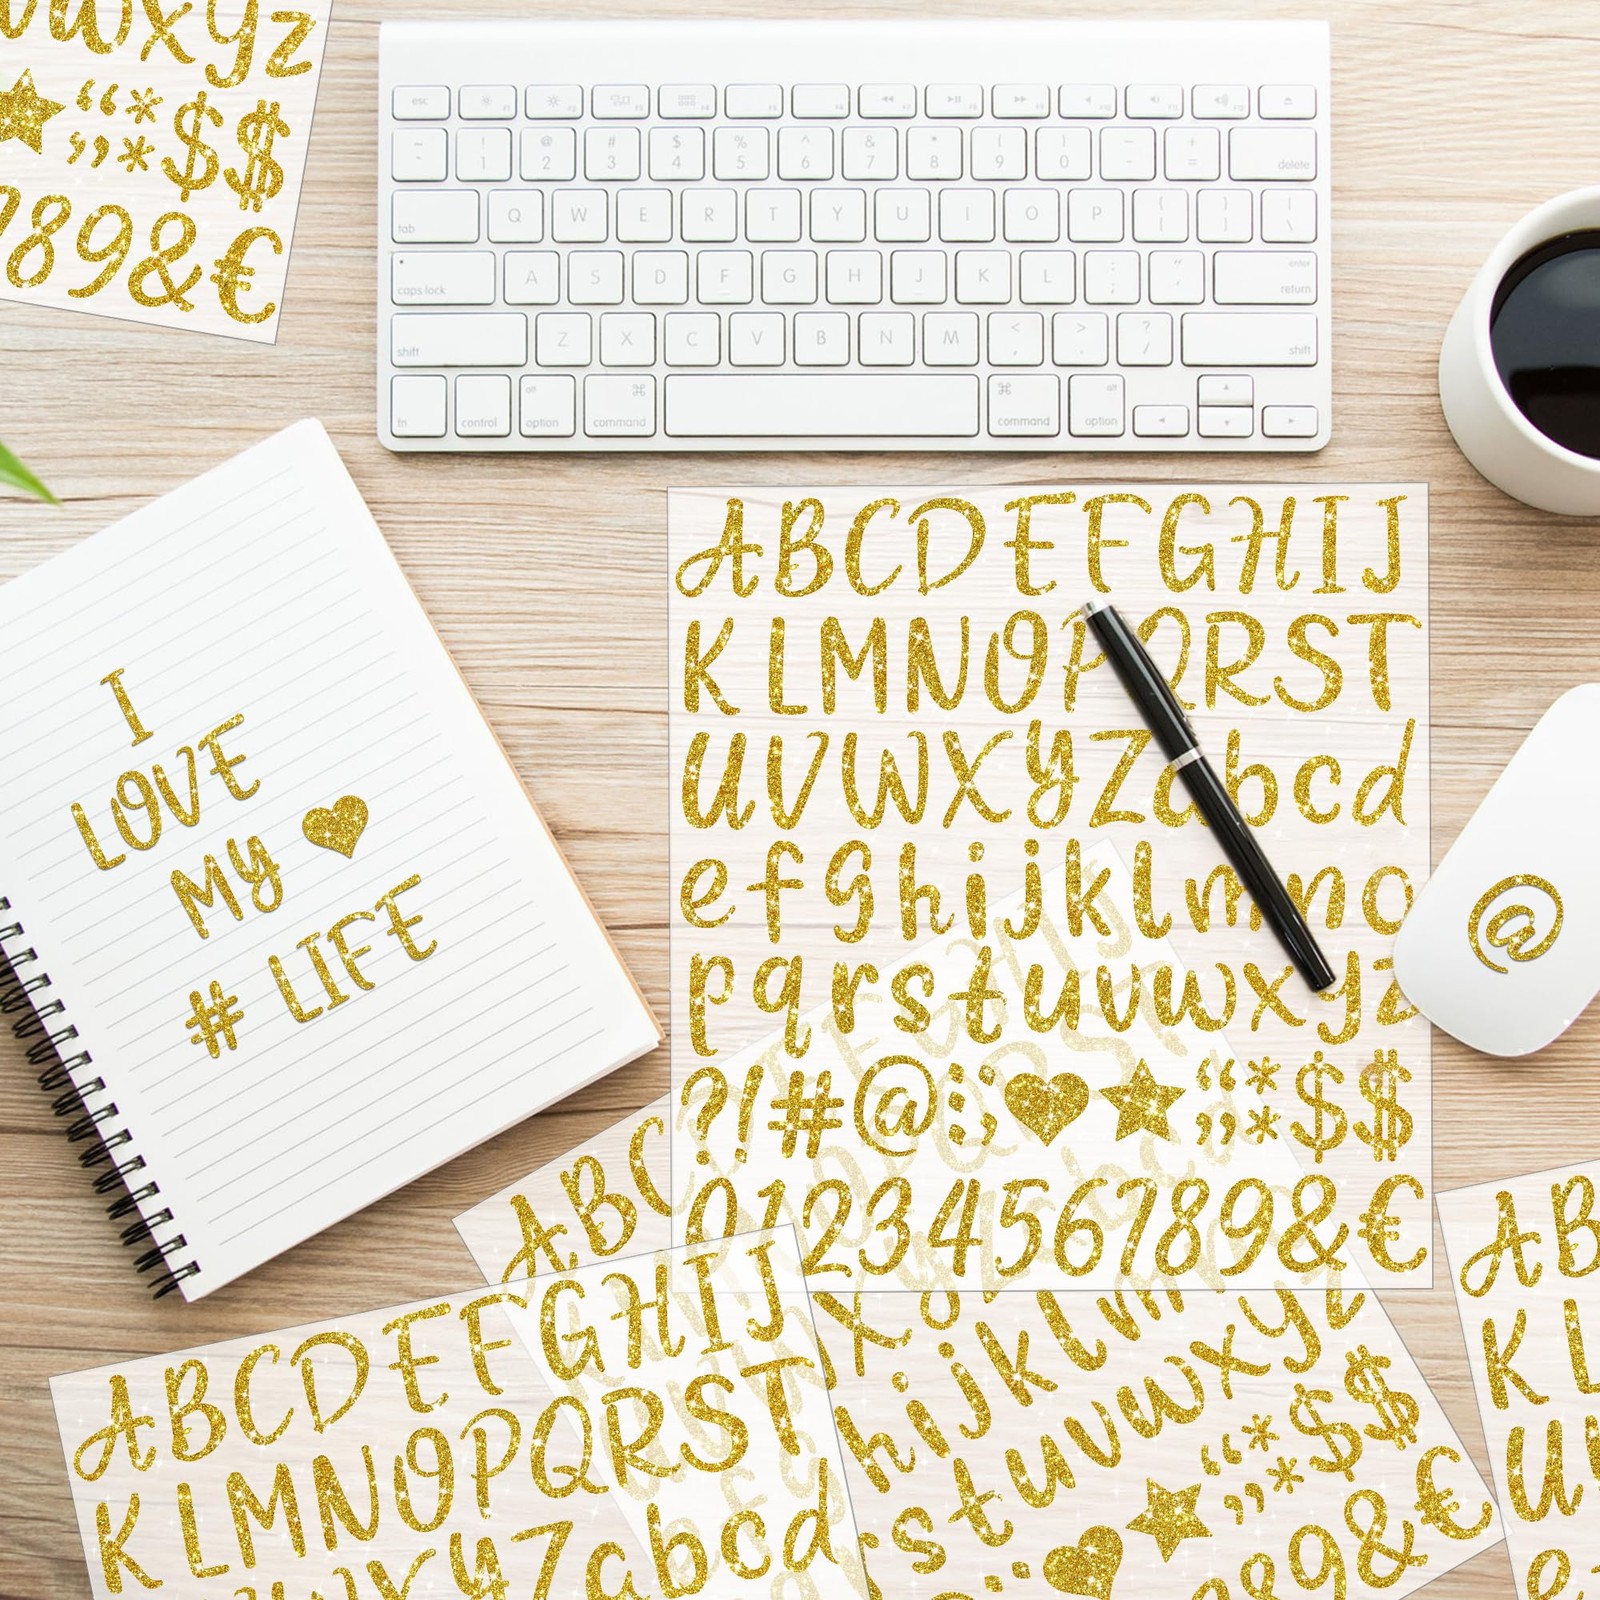 vwxyz
“ * $ $
” *
789&€
esc F1 F2 F3 F4 F5 F6 F7 F8 F9 F10 F11 F12
~ ` ! 1 @ 2 # 3 $ 4 % 5 ^ 6 & 7 * 8 ( 9 ) 0 _ - + = delete
tab Q W E R T Y U I O P { [ } ] | \
caps lock A S D F G H J K L : ; " ' enter return
shift Z X C V B N M < , > . ? / shift
fn control alt option ⌘ command ⌘ command alt option
I
LOVE
MY ♥
# LIFE
ABCDEFGHIJ
KLMNOPQRST
UVWXYZabcd
efghijklmno
pqrstuvwxyz
?!#@:;♥★“*$$
”*
0123456789&€
@
ABC
ABCDEFGHIJ
KLMNOPQRST
abcd
hijklmn
stuvwxyz
“*$$
:;♥★”*
89&€
AB
KL
U
e